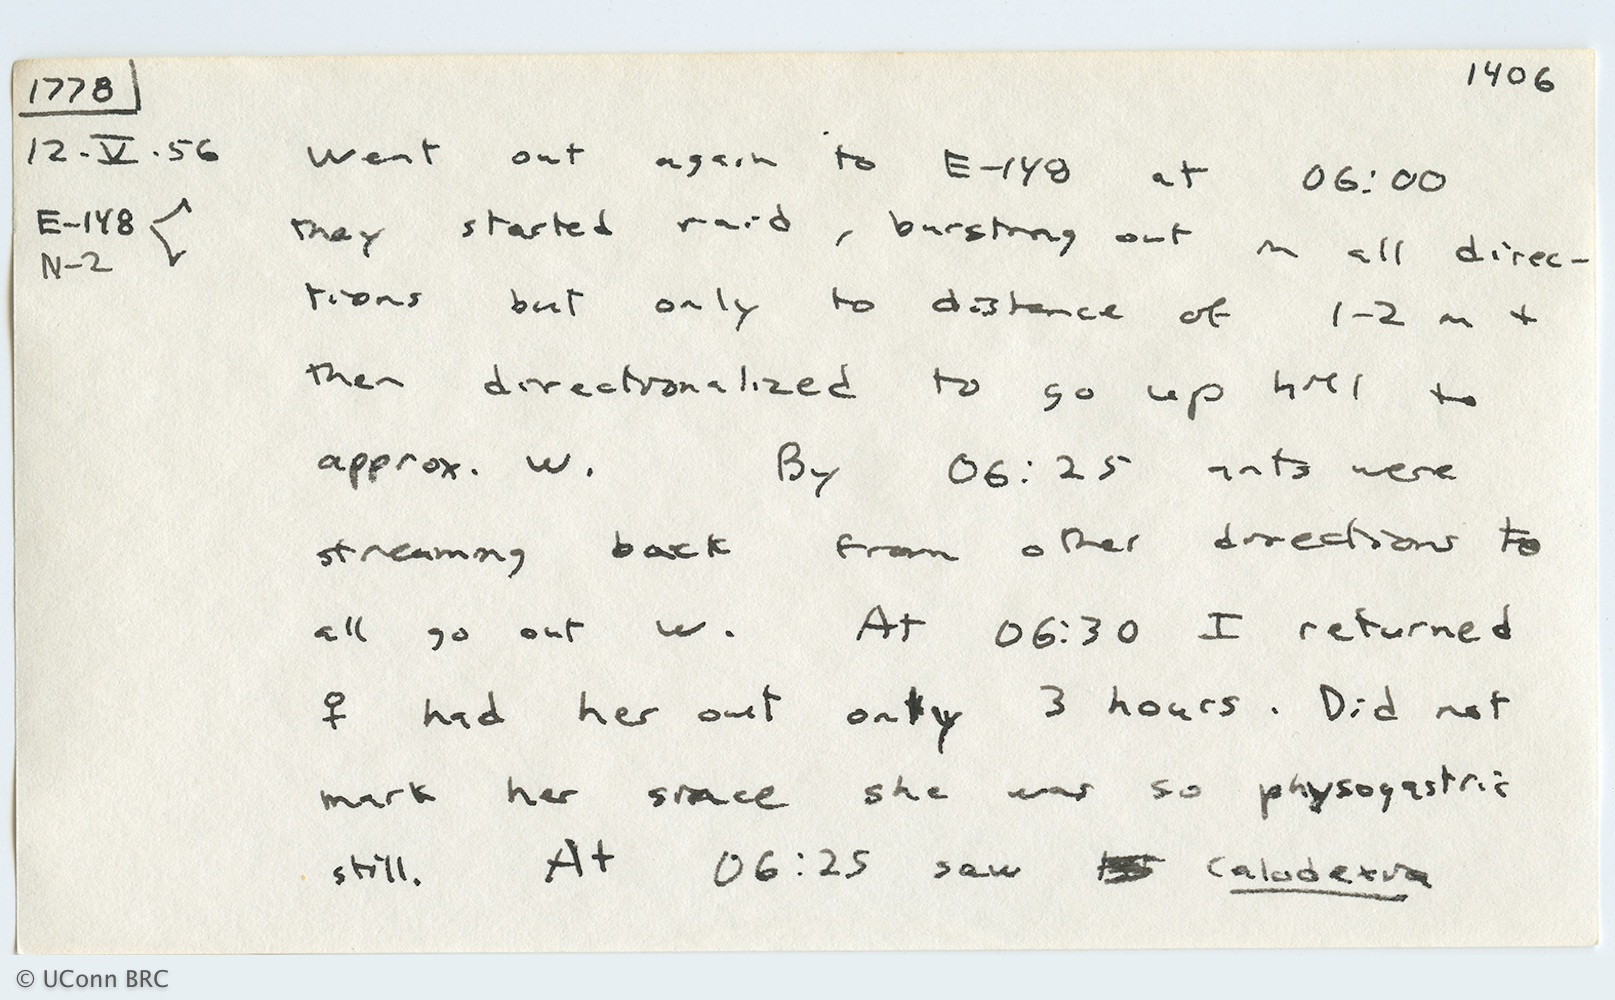 1778
1406
12.V.56 Went out again to E-148 at 06:00
E-148 they started raid, bursting out in all direc-
N-2
tions but only to distance of 1-2 m +
then directionalized to go up hill to
approx. W. By 06:25 ants were
streaming back from other directions to
all go out W. At 06:30 I returned
♀ had her out only 3 hours. Did not
mark her since she was so physogastric
still. At 06:25 saw Calodexia
© UConn BRC